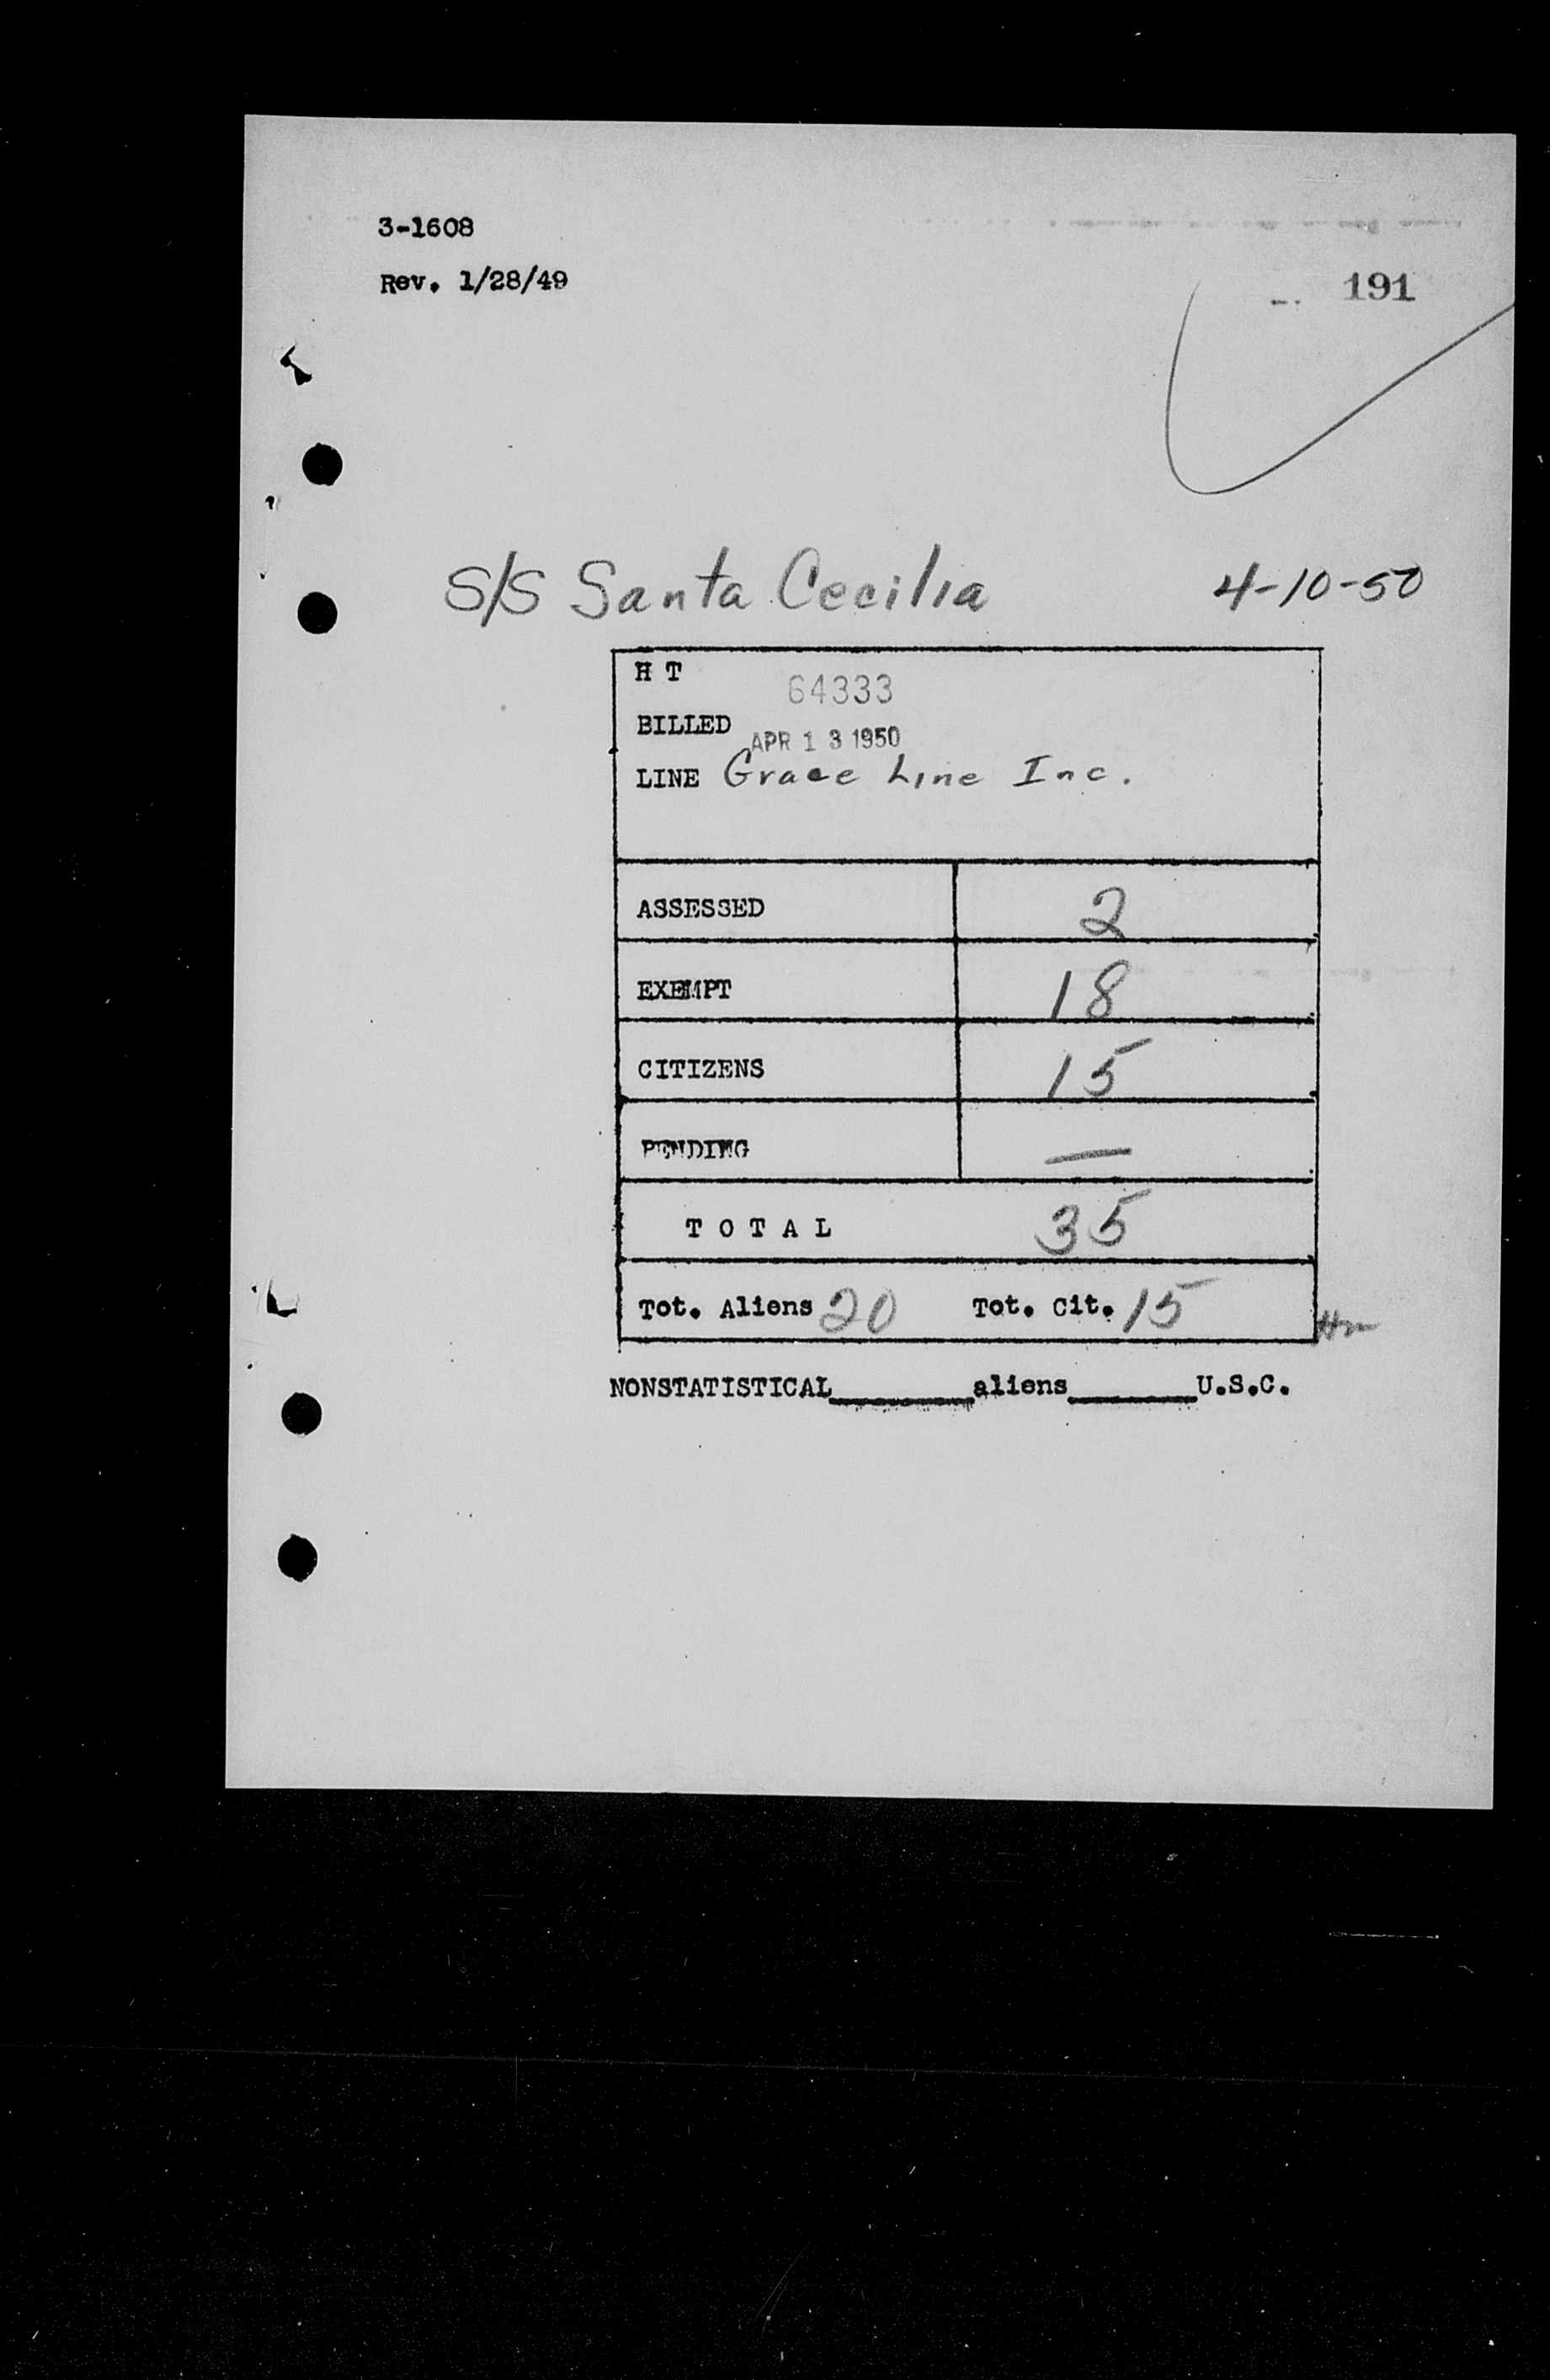 3-1608
Rev. 1/28/49
191
S/S Santa Cecilia 4-10-50
H T 64333
BILLED APR 13 1950
LINE Grace Line Inc.
ASSESSED 2
EXEMPT 18
CITIZENS 15
PENDING —
TOTAL 35
Tot. Aliens 20 Tot. Cit. 15
NONSTATISTICAL________aliens_______U.S.C.